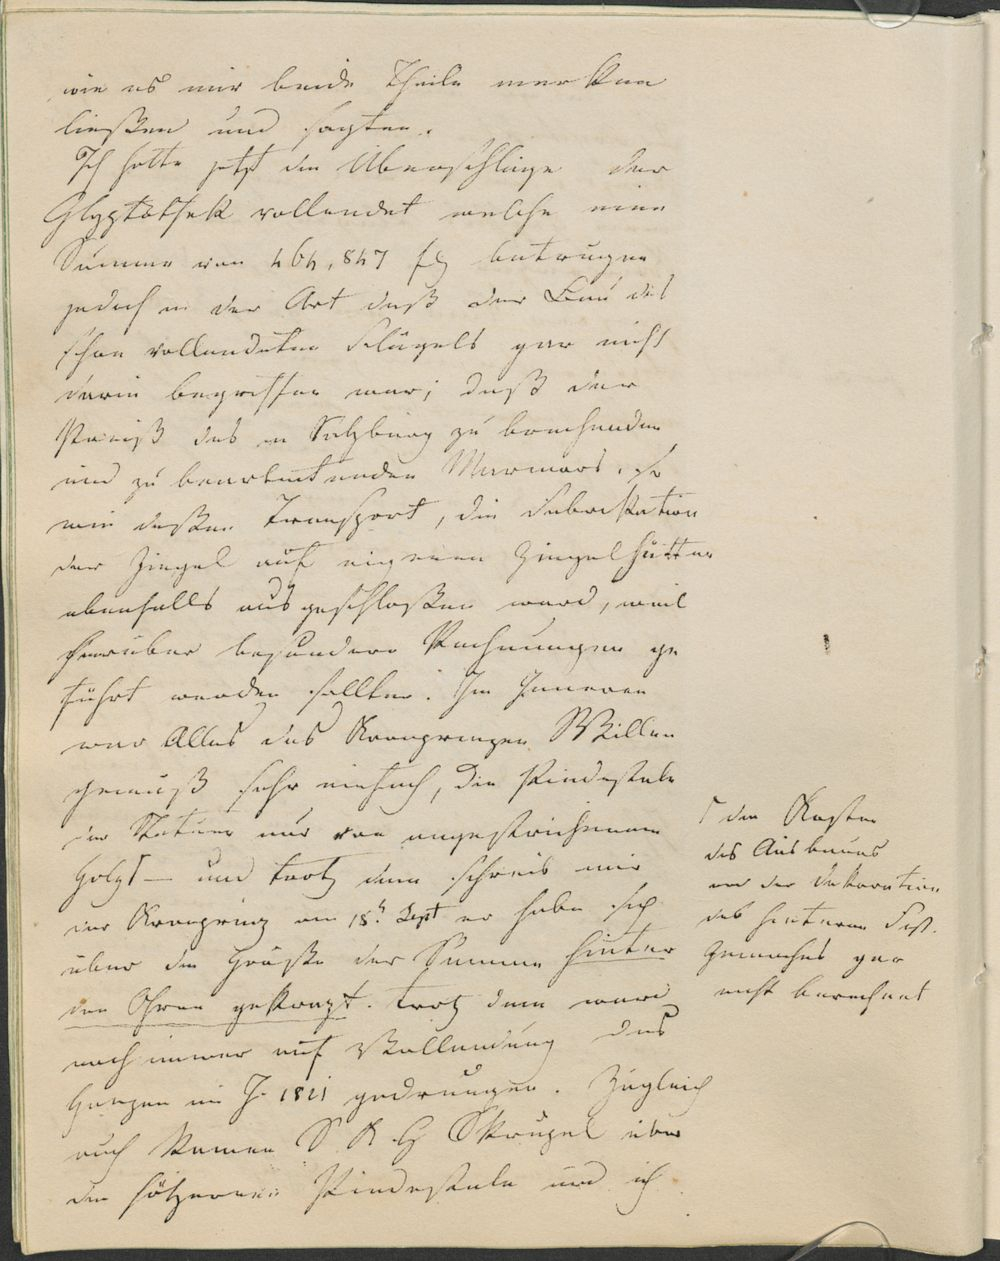 wie es mir beide Theile merken
ließen und sagten.
Ich hatte jetzt die Überschläge der
Glyptothek vollendet welche eine
Summe von 464,847 fl betrugen
jedoch in der Art daß der Bau des
schon vollendeten Flügels gar nicht
darin begriffen war; daß der
Preiß des in Salzburg zu brechenden
und zu bearbeitenden Marmors, so
wie deßen Transport, die Fabrikation
der Ziegel auf eigenen Ziegelhütten
ebenfalls ausgeschloßen ward, weil
hierüber besondere Rechnungen ge
führt werden sollten. Im Inneren
war Alles des Kronprinzen Willen
gemäß sehr einfach, die Piedestale
der Statuen nur von angestrichenem
Holz⌈ — und trotz dem schrieb mir
der Kronprinz am 18t Sept er habe sich
über die Größe der Summe hinter
den Ohren gekrazt. Trotz dem ward
noch immer auf Vollendung des
Ganzen im J. 1821 gedrungen. Zugleich
auch kamen S. K. H Skrupel über
die hölzernen Piedestale und ich
⌈ die Kosten
des Ausbaues
und der Dekoration
des hinteren Fest.
Gemaches gar
nicht berechnet